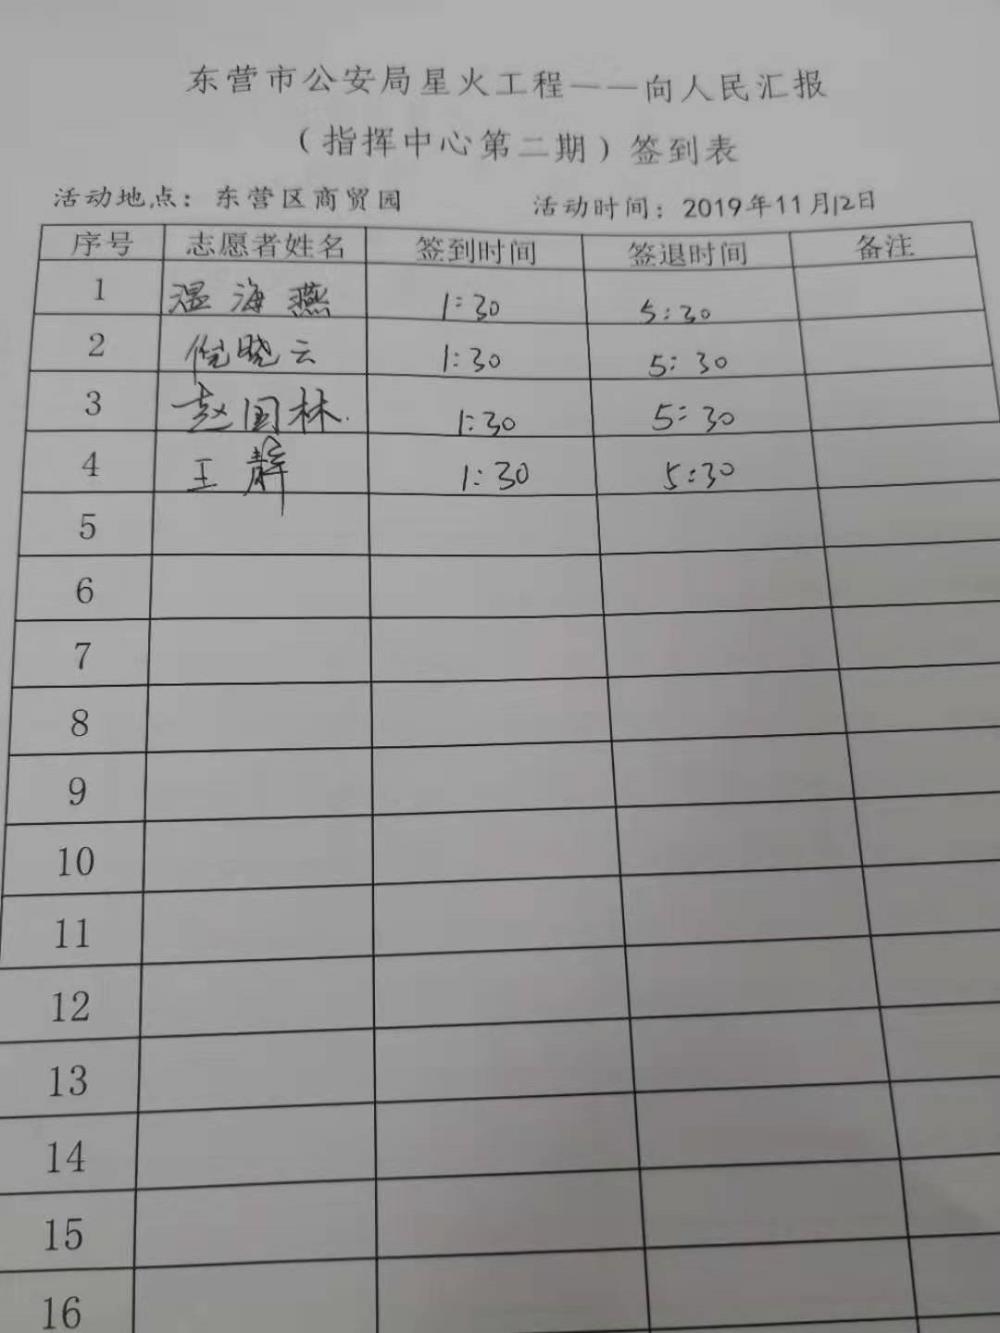 东营市公安局星火工程——向人民汇报
（指挥中心第二期）签到表
活动地点：东营区商贸园 活动时间：2019年11月12日
序号 志愿者姓名 签到时间 签退时间 备注
1 温海燕 1:30 5:30
2 倪晓云 1:30 5:30
3 赵国林 1:30 5:30
4 王静 1:30 5:30
5
6
7
8
9
10
11
12
13
14
15
16